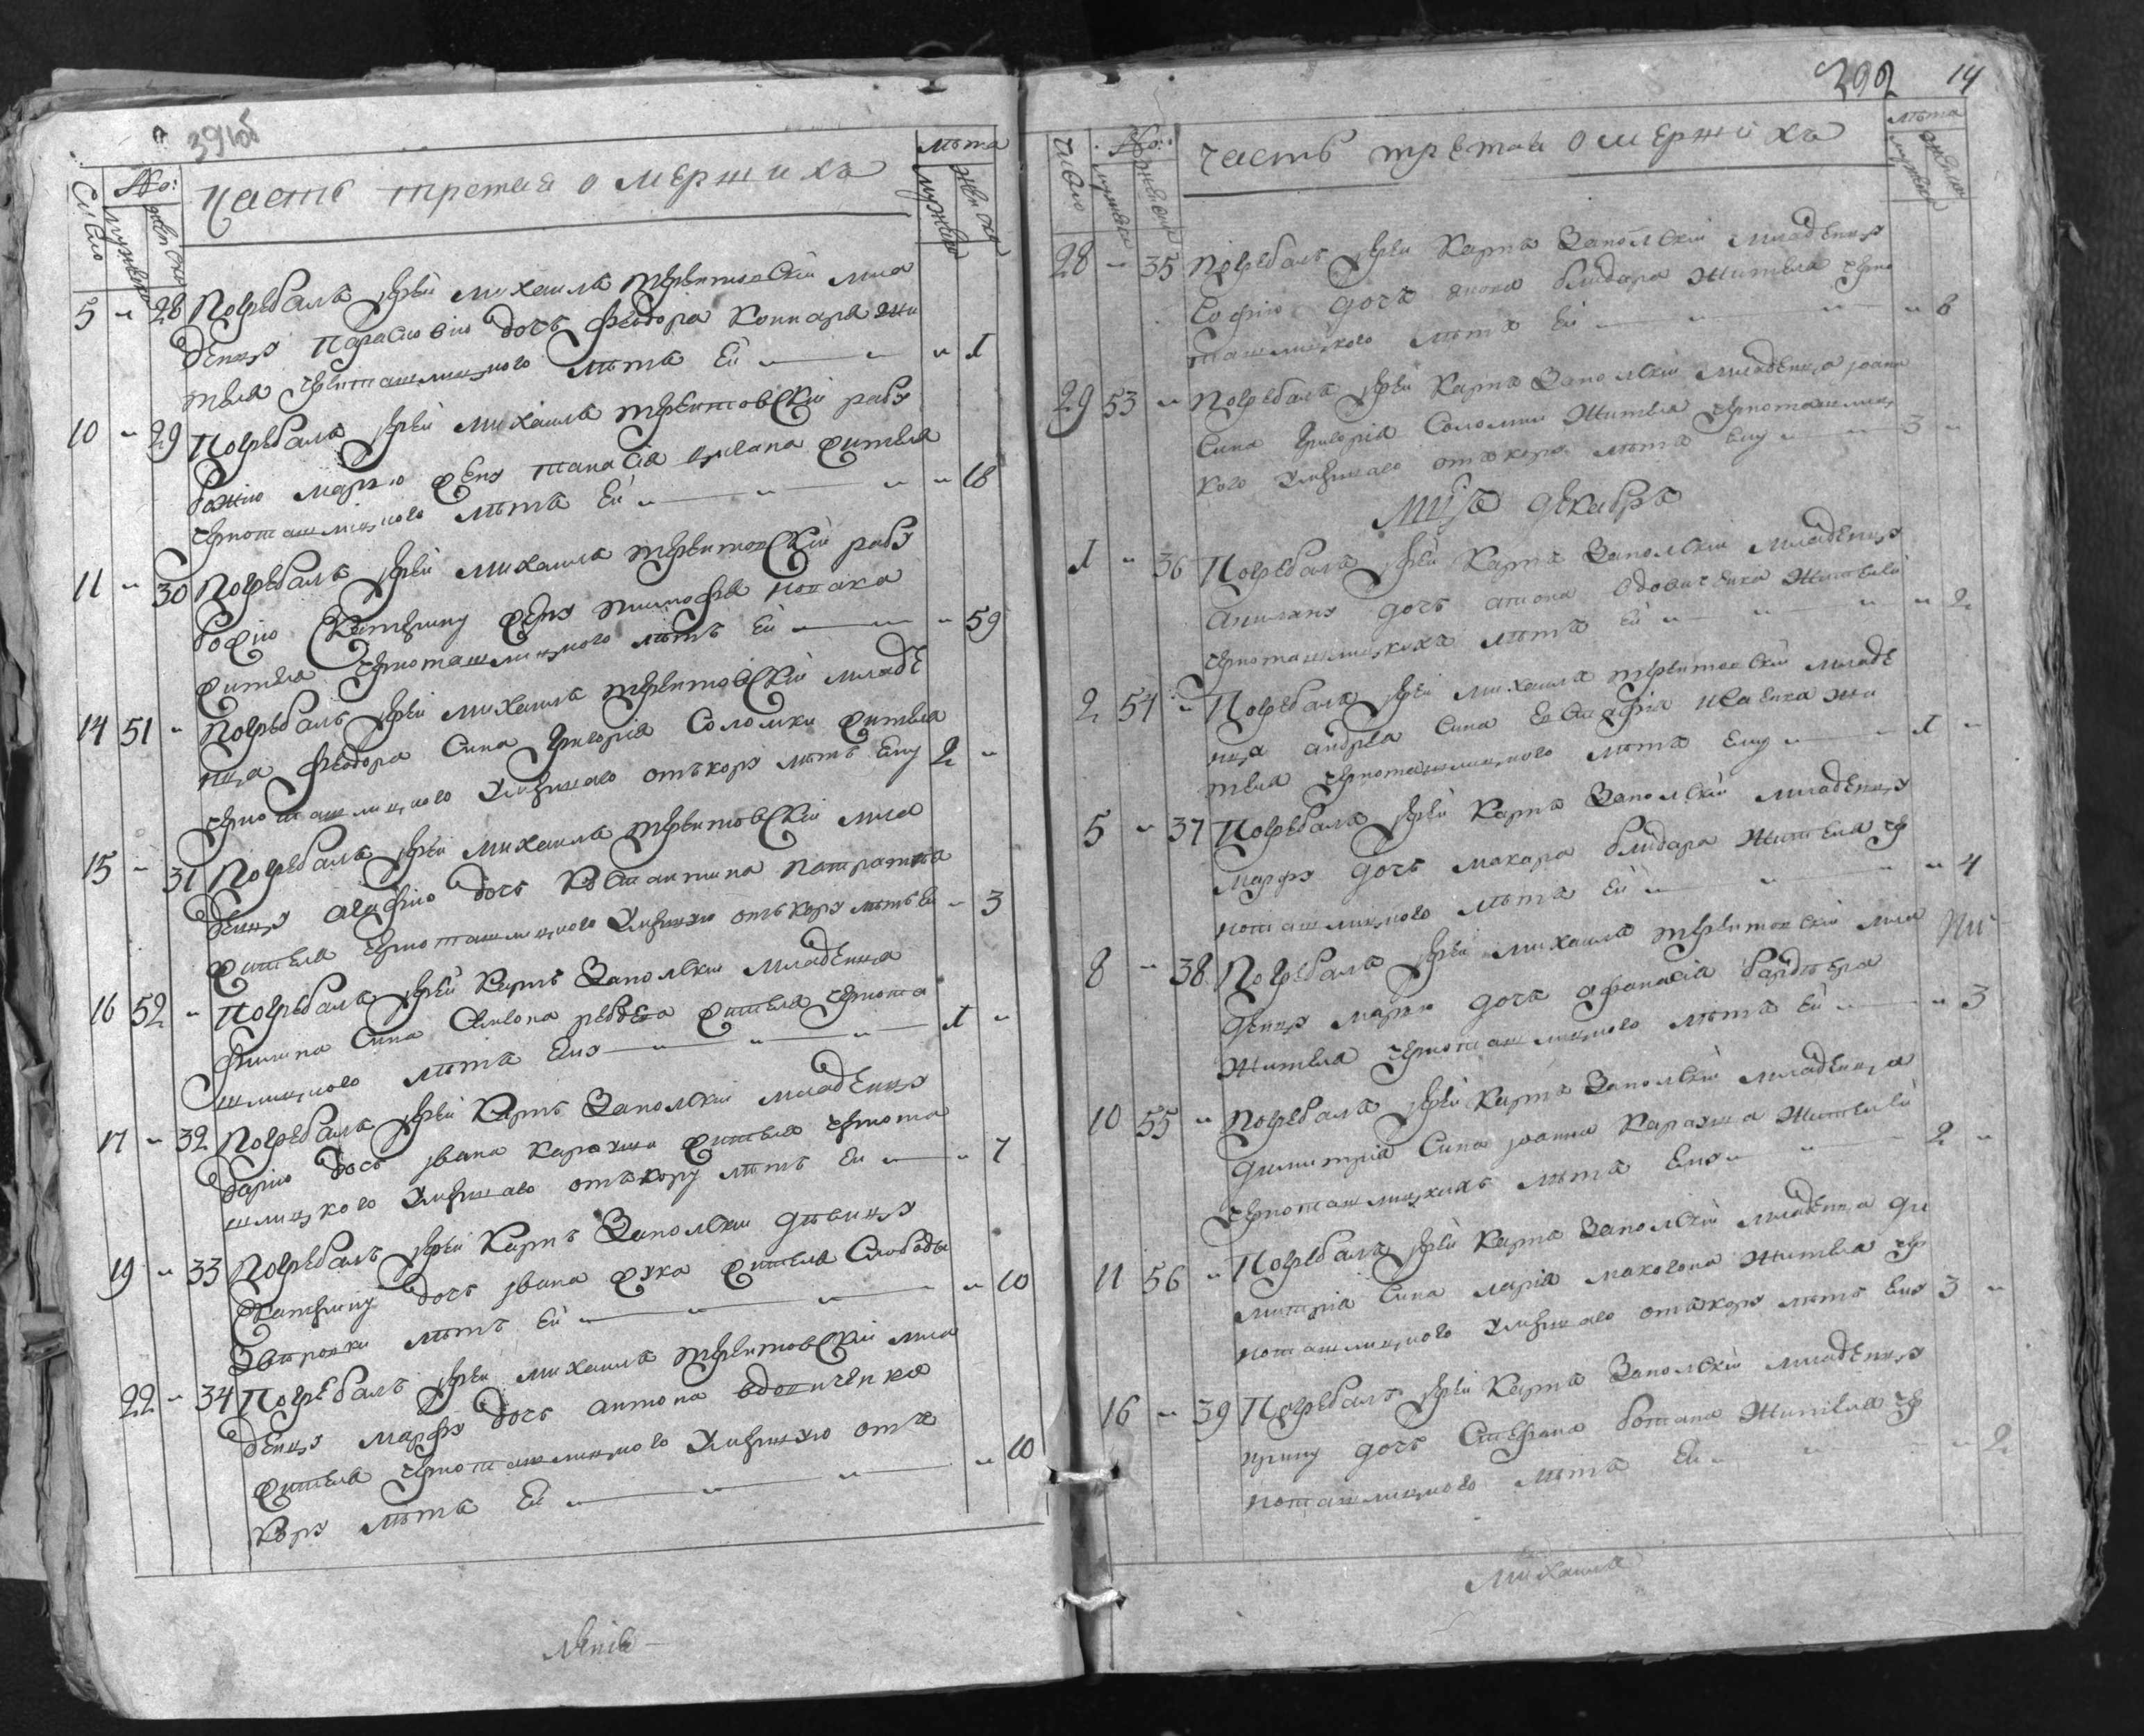 391об
Число
No:
мужеска
женска
Часть третая о мершихъ
лѣта
мужеска
женска
5 " 28 Погребалъ іерей Михаилъ Терентовскій мла
денца Параскевію дочь Феодора Коннара жи
теля Черноташлицкого лѣтъ ей " " 1
10 " 29 Погребалъ іерей Михаилъ Терентовскій рабу
божію Марію жену Танасія жителя
Черноташлицкого лѣтъ ей " " " 18
11 " 30 Погребалъ іерей Михаилъ Терентовскій рабу
божію Екатерину жену Тимофея
жителя Черноташлицкого лѣтъ ей " 59
14 51 " Погребалъ іерей Михаилъ Терентовскій младе
нца Феодора сина Григорія Соломки жителя
Черноташлицкого умершаго отъ кору лѣтъ ему 2 "
15 " 31 Погребалъ іерей Михаилъ Терентовскій мла
денца Агафію дочь Костантина
жителя Черноташлицкого умершую отъ кору лѣтъ ей " 3
16 52 " Погребалъ іерей Карпъ Запольскій младенца
Филипа сина Симеона жителя Чернота
шлицкого лѣтъ ему " " " 1 "
17 " 32 Погребалъ іерей Карпъ Запольскій младенца
Дарію дочь Ивана жителя Чернота
шлицкого умершаго отъ кору лѣтъ ей " " 7
19 " 33 Погребалъ іерей Карпъ Запольскій дѣвицу
Екатерину дочь Ивана жителя Слободы
лѣтъ ей " " " 10
22 " 34 Погребалъ іерей Михаилъ Терентовскій мла
денца Марфу дочь Антона Вдовиченка
жителя Черноташлицкого умершую отъ
кору лѣтъ ей " " " 10
392 14
Число
No:
мужеска
женска
Часть третая о мершихъ
лѣта
мужеска
женска
28 " 35 Погребалъ іерей Карпъ Запольскій младенца
Софію дочь Бондара жителя Черно
ташлицкого лѣтъ ей " " " 6
29 53 " Погребалъ іерей Карпъ Запольскій младенца Іоанн
сина Григорія Соломки жителя Черноташлиц
кого умершаго отъ кору лѣтъ ему " " 3 "
Мцъ Декабръ
1 " 36 Погребалъ іерей Карпъ Запольскій младенца
дочь Антона Вдовиченка жителей
Черноташлицкихъ лѣтъ ей " " " 2
2 54 " Погребалъ іерей Михаилъ Терентовскій младе
нца Андрея сина Евстафія жи
теля Черноташлицкого лѣтъ ему " 1 "
5 " 37 Погребалъ іерей Карпъ Запольскій младенца
Марфу дочь Макара Бондара жителя Чер
ноташлицкого лѣтъ ей " " " 4
8 " 38 Погребалъ іерей Михаилъ Терентовскій мла
денца Марію дочь Афанасія
жителя Черноташлицкого лѣтъ ей " 3
10 55 " Погребалъ іерей Карпъ Запольскій младенца
Димитрія сина Іоанна жителей
Черноташлицкихъ лѣтъ ему " " 2 "
11 56 " Погребалъ іерей Карпъ Запольскій младенца Ди
митрія сина жителя Чер
ноташлицкого умершаго отъ кору лѣтъ ему 3 "
16 " 39 Погребалъ іерей Карпъ Запольскій младенца
Ирину дочь Стефана жителя Чер
ноташлицкого лѣтъ ей " " 2
Михаилъ